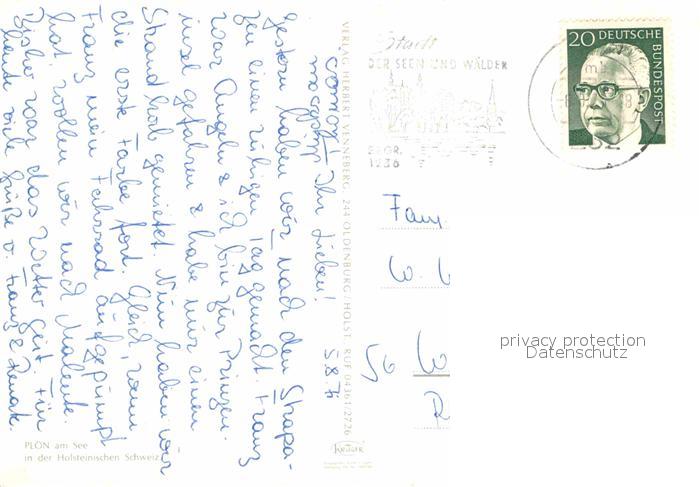 Samstag 5.8.71
morgen
Ihr Lieben!
Gestern haben wir nach den Strapa-
zen einen ruhigen Tag gemacht. Franz
war Angeln & ich bin zur Prinzen-
insel gefahren & habe mir einen
Strandkorb gemietet. Nun haben wir
die erste Farbe fort. Gleich, wenn
Franz mein Fahrrad aufgepumpt
hat, wollen wir nach Malente.
Bisher war das Wetter gut. Für
heute viele Grüße v. Franz & Renate.
PLÖN am See
in der Holsteinischen Schweiz
VERLAG HERBERT VENNEBERG, 244 OLDENBURG/HOLST. RUF 04361/2726
KRÜGER
Stadt
DER SEEN UND WÄLDER
GEGR.
1236
20 DEUTSCHE
BUNDESPOST
232
Fam
W.
W
privacy protection
Datenschutz